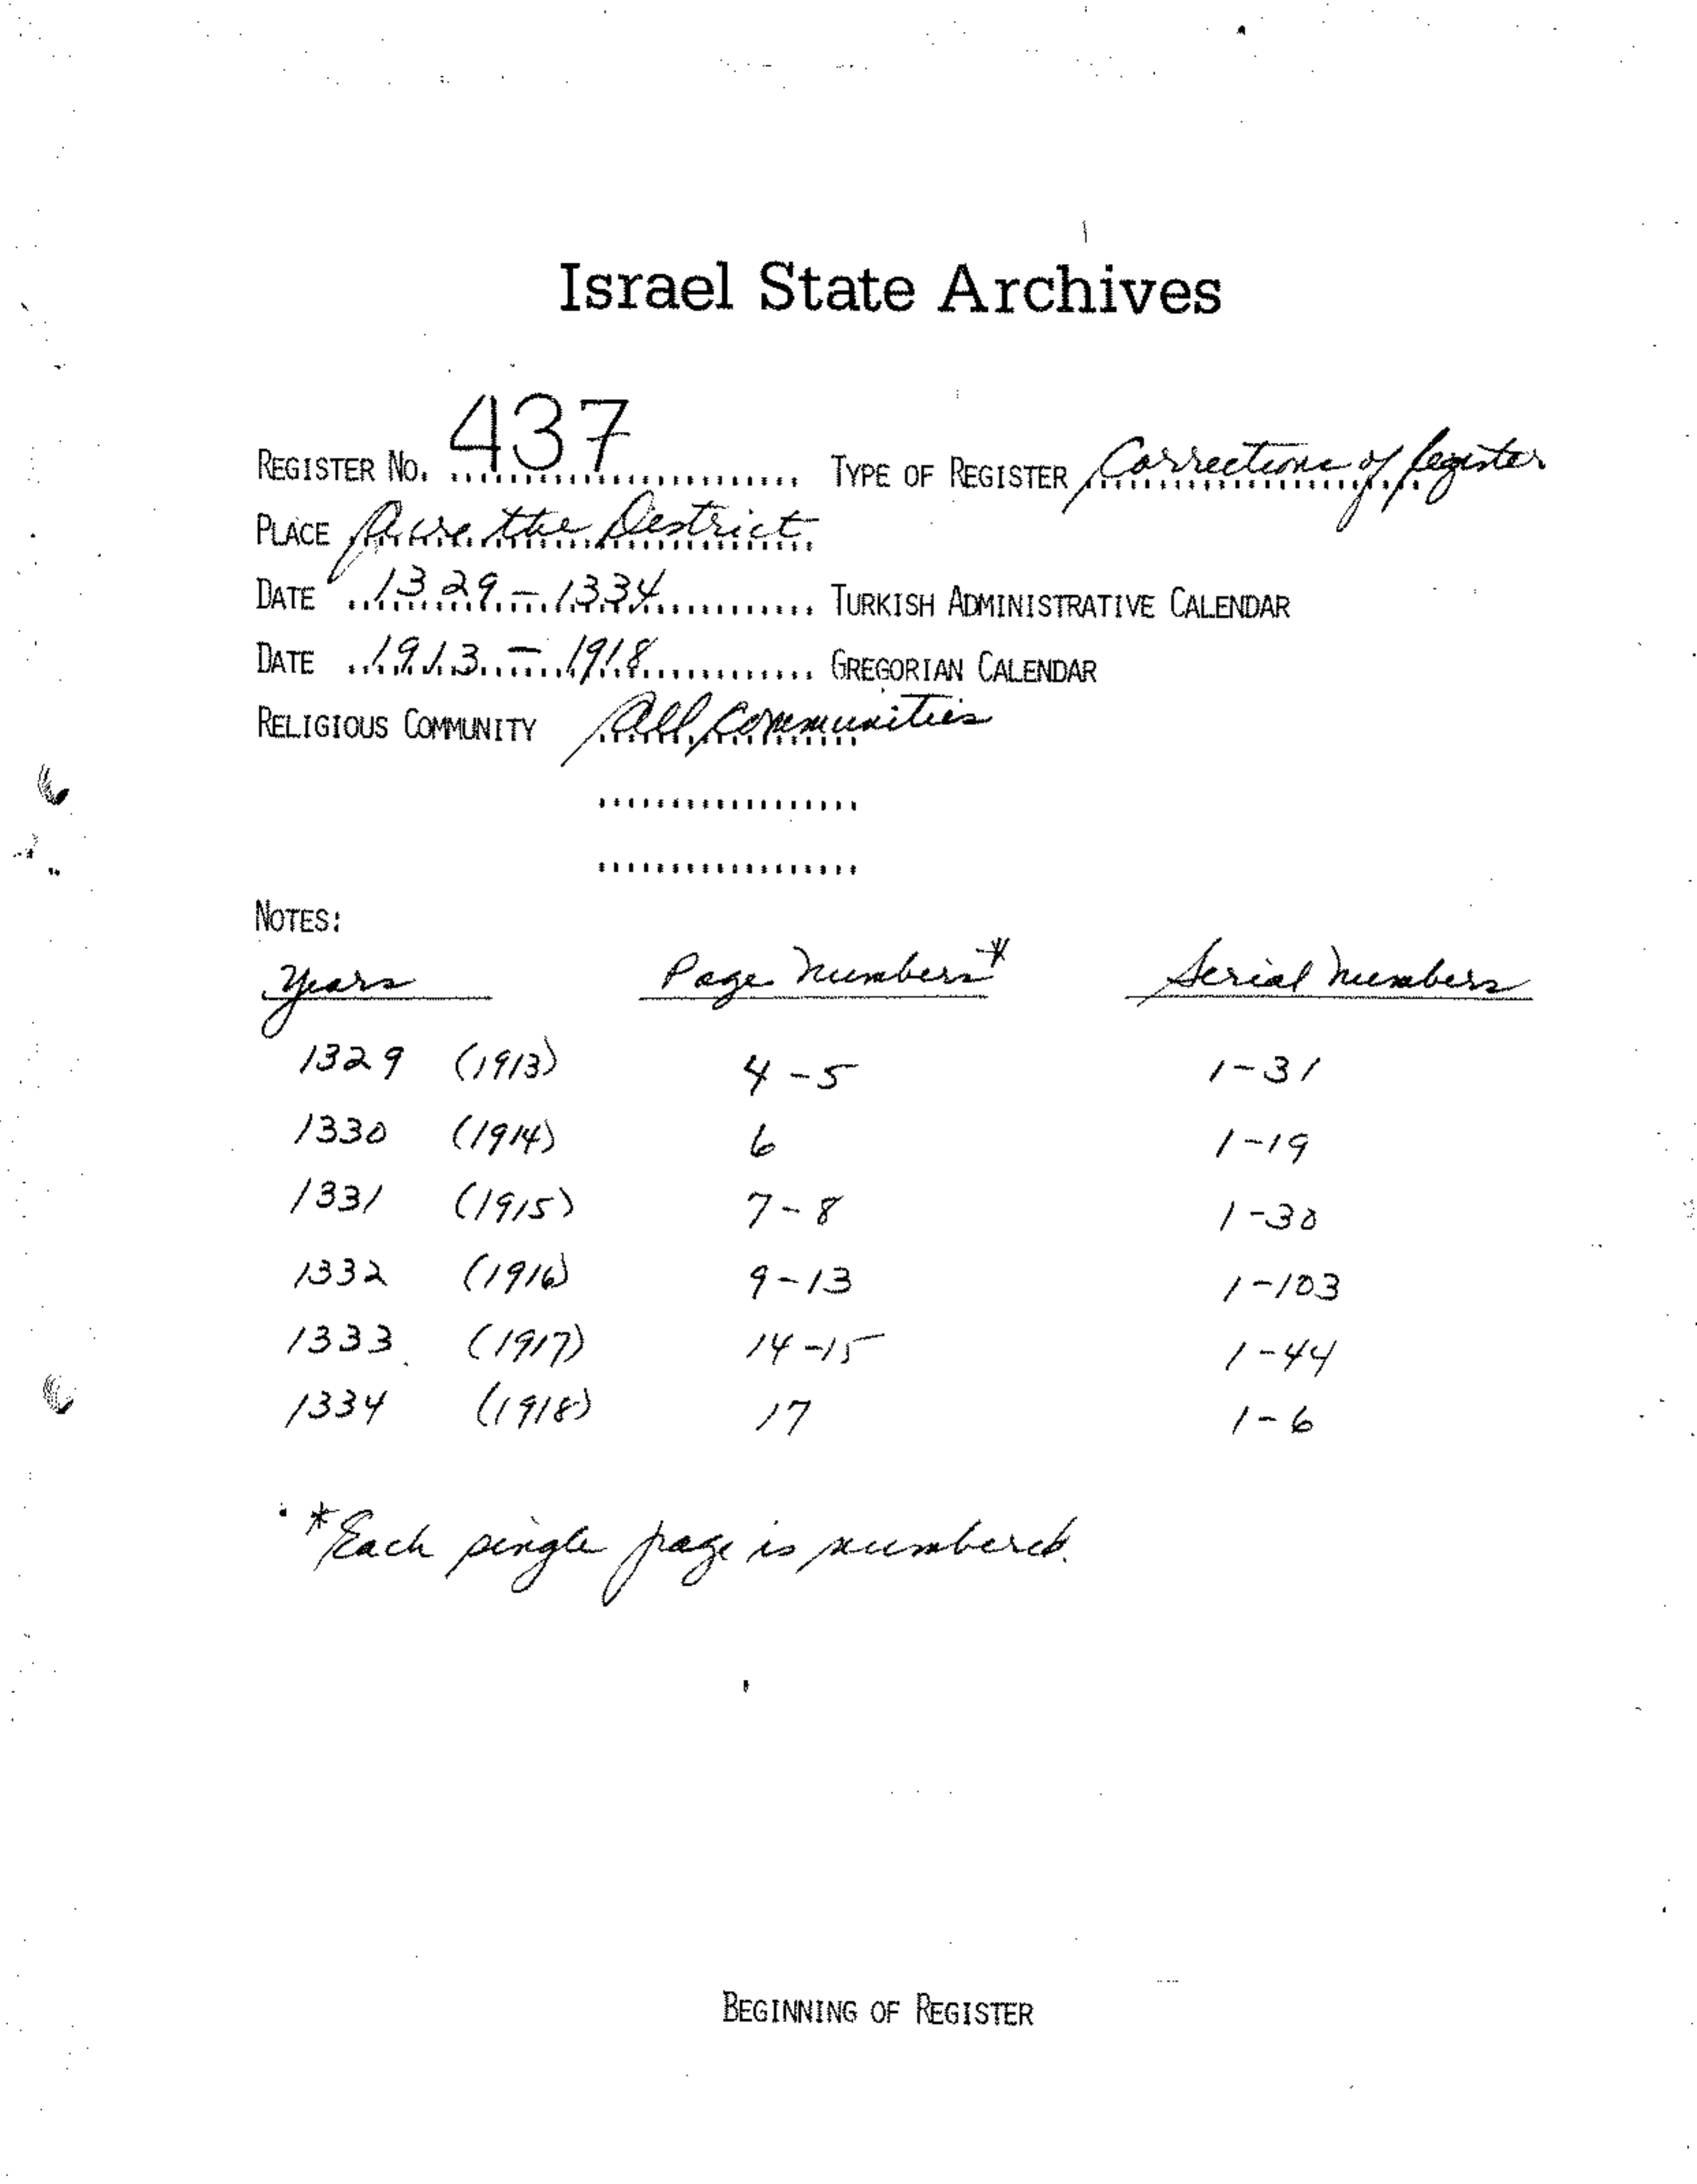 Israel State Archives
REGISTER No. 437 TYPE OF REGISTER Corrections of Register
PLACE the District
DATE 1329 - 1334 TURKISH ADMINISTRATIVE CALENDAR
DATE 1913 - 1918 GREGORIAN CALENDAR
RELIGIOUS COMMUNITY All Communities
NOTES:
Years Page Numbers* Serial Numbers
1329 (1913) 4-5 1-31
1330 (1914) 6 1-19
1331 (1915) 7-8 1-30
1332 (1916) 9-13 1-103
1333 (1917) 14-15 1-44
1334 (1918) 17 1-6
*Each single page is numbered.
BEGINNING OF REGISTER